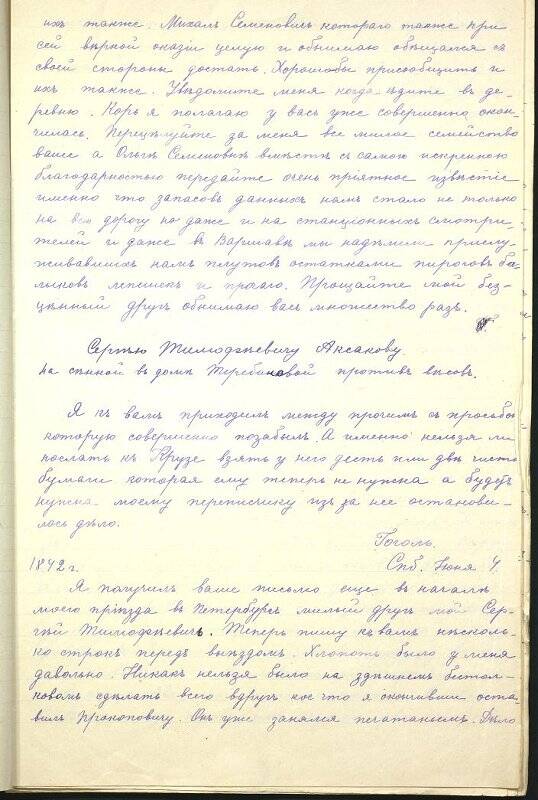 ихъ также. Михалъ Семеновичъ котораго также при
сей вѣрной оказіи цѣлую и обнимаю обѣщался съ
своей стороны достать. Хорошобы присообщить и
ихъ также. Увѣдомите меня когда ѣдите въ де-
ревню. Корь я полагаю у васъ уже совершенно окон-
чилась. Перецѣлуйте за меня все милое семейство
ваше а Ольгѣ Семеновнѣ вмѣстѣ съ самою искреннею
благодарностью передайте очень пріятное извѣстіе
именно что запасовъ данныхъ намъ стало не только
на всю дорогу но даже и на станціонныхъ смотри-
телей и даже въ Варшавѣ мы надѣлили прислу-
живавшихъ намъ плутовъ остатками пироговъ ба-
лыковъ лепешекъ и прочаго. Прощайте мой без-
цѣнный другъ обнимаю васъ множество разъ.
Г.
Сергѣю Тимофѣевичу Аксакову.
на сѣнной въ домѣ Теребиновой противъ вѣсовъ.
Я къ вамъ приходилъ между прочимъ съ просьбой
которую совершенно позабылъ. А именно нельзя ли
послать къ Крузе взять у него десть или двѣ чистой
бумаги которая ему теперь не нужна а будетъ
нужна моему переписчику изъ за нее останови-
лось дѣло.
Гоголь.
1842 г. Спб. Іюня 4
Я получилъ ваше письмо еще въ началѣ
моего пріѣзда въ Петербургъ милый другъ мой Сер-
гѣй Тимофѣевичъ. Теперь пишу къ вамъ нѣсколь-
ко строкъ передъ выѣздомъ. Хлопотъ было у меня
давольно. Никакъ нельзя было на здѣшнемъ безтол-
ковомъ сдѣлать всего вдругъ кое что я окончивши оста-
вилъ Прокоповичу. Онъ уже занялся печатаньемъ. Дѣло